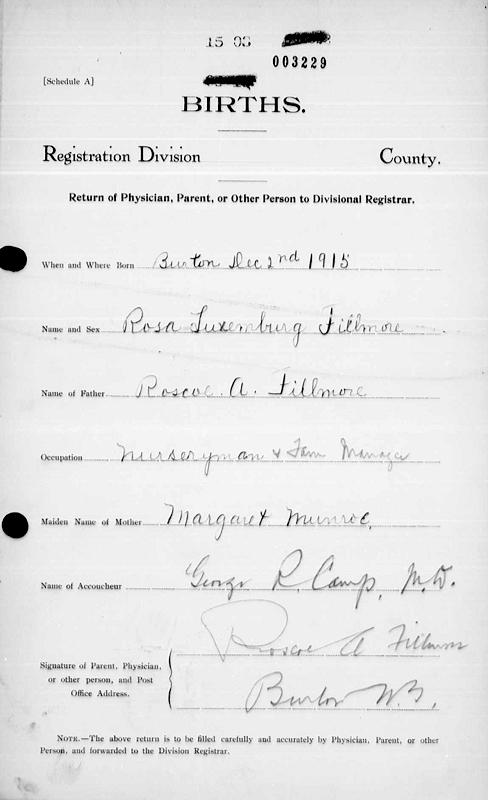 15 03
003229
[Schedule A]
BIRTHS.
Registration Division County.
Return of Physician, Parent, or Other Person to Divisional Registrar.
When and Where Born Burton Dec 2nd 1915
Name and Sex Rosa Luxemburg Fillmore
Name of Father Roscoe A. Fillmore
Occupation Nurseryman & Farm Manager
Maiden Name of Mother Margaret Munroe,
Name of Accoucheur George R. Camp, M.D.
Roscoe A Fillmore
Signature of Parent, Physician,
or other person, and Post
Office Address.
Burton N.B.
NOTE.—The above return is to be filled carefully and accurately by Physician, Parent, or other
Person, and forwarded to the Division Registrar.